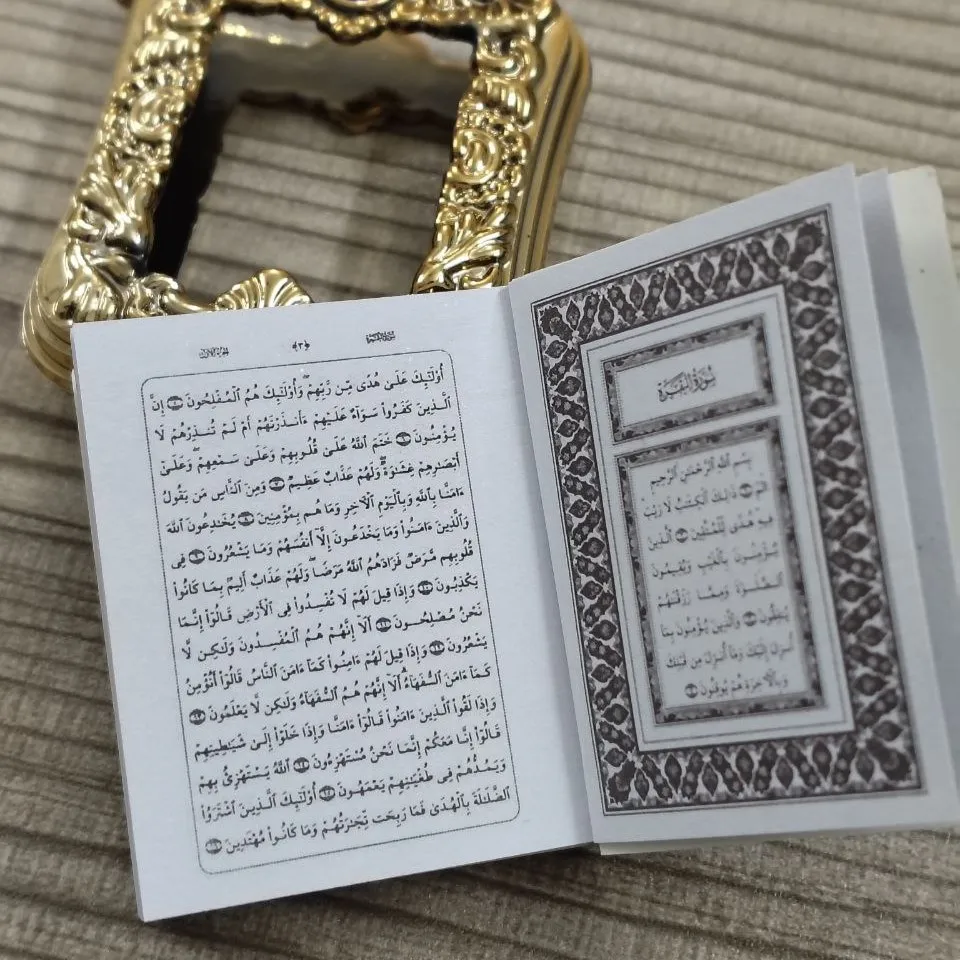 سُورَةُ البَقَرَةِ
بِسْمِ ٱللَّهِ ٱلرَّحْمَٰنِ ٱلرَّحِيمِ
الٓمٓ ۝ ذَٰلِكَ ٱلْكِتَٰبُ لَا رَيْبَ
فِيهِ هُدًى لِّلْمُتَّقِينَ ۝ ٱلَّذِينَ
يُؤْمِنُونَ بِٱلْغَيْبِ وَيُقِيمُونَ
ٱلصَّلَوٰةَ وَمِمَّا رَزَقْنَٰهُمْ
يُنفِقُونَ ۝ وَٱلَّذِينَ يُؤْمِنُونَ بِمَآ
أُنزِلَ إِلَيْكَ وَمَآ أُنزِلَ مِن قَبْلِكَ
وَبِٱلْأٓخِرَةِ هُمْ يُوقِنُونَ ۝
﴿٣﴾
أُو۟لَٰٓئِكَ عَلَىٰ هُدًى مِّن رَّبِّهِمْ ۖ وَأُو۟لَٰٓئِكَ هُمُ ٱلْمُفْلِحُونَ ۝ إِنَّ
ٱلَّذِينَ كَفَرُوا۟ سَوَآءٌ عَلَيْهِمْ ءَأَنذَرْتَهُمْ أَمْ لَمْ تُنذِرْهُمْ لَا
يُؤْمِنُونَ ۝ خَتَمَ ٱللَّهُ عَلَىٰ قُلُوبِهِمْ وَعَلَىٰ سَمْعِهِمْ ۖ وَعَلَىٰٓ
أَبْصَٰرِهِمْ غِشَٰوَةٌ ۖ وَلَهُمْ عَذَابٌ عَظِيمٌ ۝ وَمِنَ ٱلنَّاسِ مَن يَقُولُ
ءَامَنَّا بِٱللَّهِ وَبِٱلْيَوْمِ ٱلْأٓخِرِ وَمَا هُم بِمُؤْمِنِينَ ۝ يُخَٰدِعُونَ ٱللَّهَ
وَٱلَّذِينَ ءَامَنُوا۟ وَمَا يَخْدَعُونَ إِلَّآ أَنفُسَهُمْ وَمَا يَشْعُرُونَ ۝ فِى
قُلُوبِهِم مَّرَضٌ فَزَادَهُمُ ٱللَّهُ مَرَضًا ۖ وَلَهُمْ عَذَابٌ أَلِيمٌۢ بِمَا كَانُوا۟
يَكْذِبُونَ ۝ وَإِذَا قِيلَ لَهُمْ لَا تُفْسِدُوا۟ فِى ٱلْأَرْضِ قَالُوٓا۟ إِنَّمَا
نَحْنُ مُصْلِحُونَ ۝ أَلَآ إِنَّهُمْ هُمُ ٱلْمُفْسِدُونَ وَلَٰكِن لَّا
يَشْعُرُونَ ۝ وَإِذَا قِيلَ لَهُمْ ءَامِنُوا۟ كَمَآ ءَامَنَ ٱلنَّاسُ قَالُوٓا۟ أَنُؤْمِنُ
كَمَآ ءَامَنَ ٱلسُّفَهَآءُ ۗ أَلَآ إِنَّهُمْ هُمُ ٱلسُّفَهَآءُ وَلَٰكِن لَّا يَعْلَمُونَ ۝
وَإِذَا لَقُوا۟ ٱلَّذِينَ ءَامَنُوا۟ قَالُوٓا۟ ءَامَنَّا وَإِذَا خَلَوْا۟ إِلَىٰ شَيَٰطِينِهِمْ
قَالُوٓا۟ إِنَّا مَعَكُمْ إِنَّمَا نَحْنُ مُسْتَهْزِءُونَ ۝ ٱللَّهُ يَسْتَهْزِئُ بِهِمْ
وَيَمُدُّهُمْ فِى طُغْيَٰنِهِمْ يَعْمَهُونَ ۝ أُو۟لَٰٓئِكَ ٱلَّذِينَ ٱشْتَرَوُا۟
ٱلضَّلَٰلَةَ بِٱلْهُدَىٰ فَمَا رَبِحَت تِّجَٰرَتُهُمْ وَمَا كَانُوا۟ مُهْتَدِينَ ۝